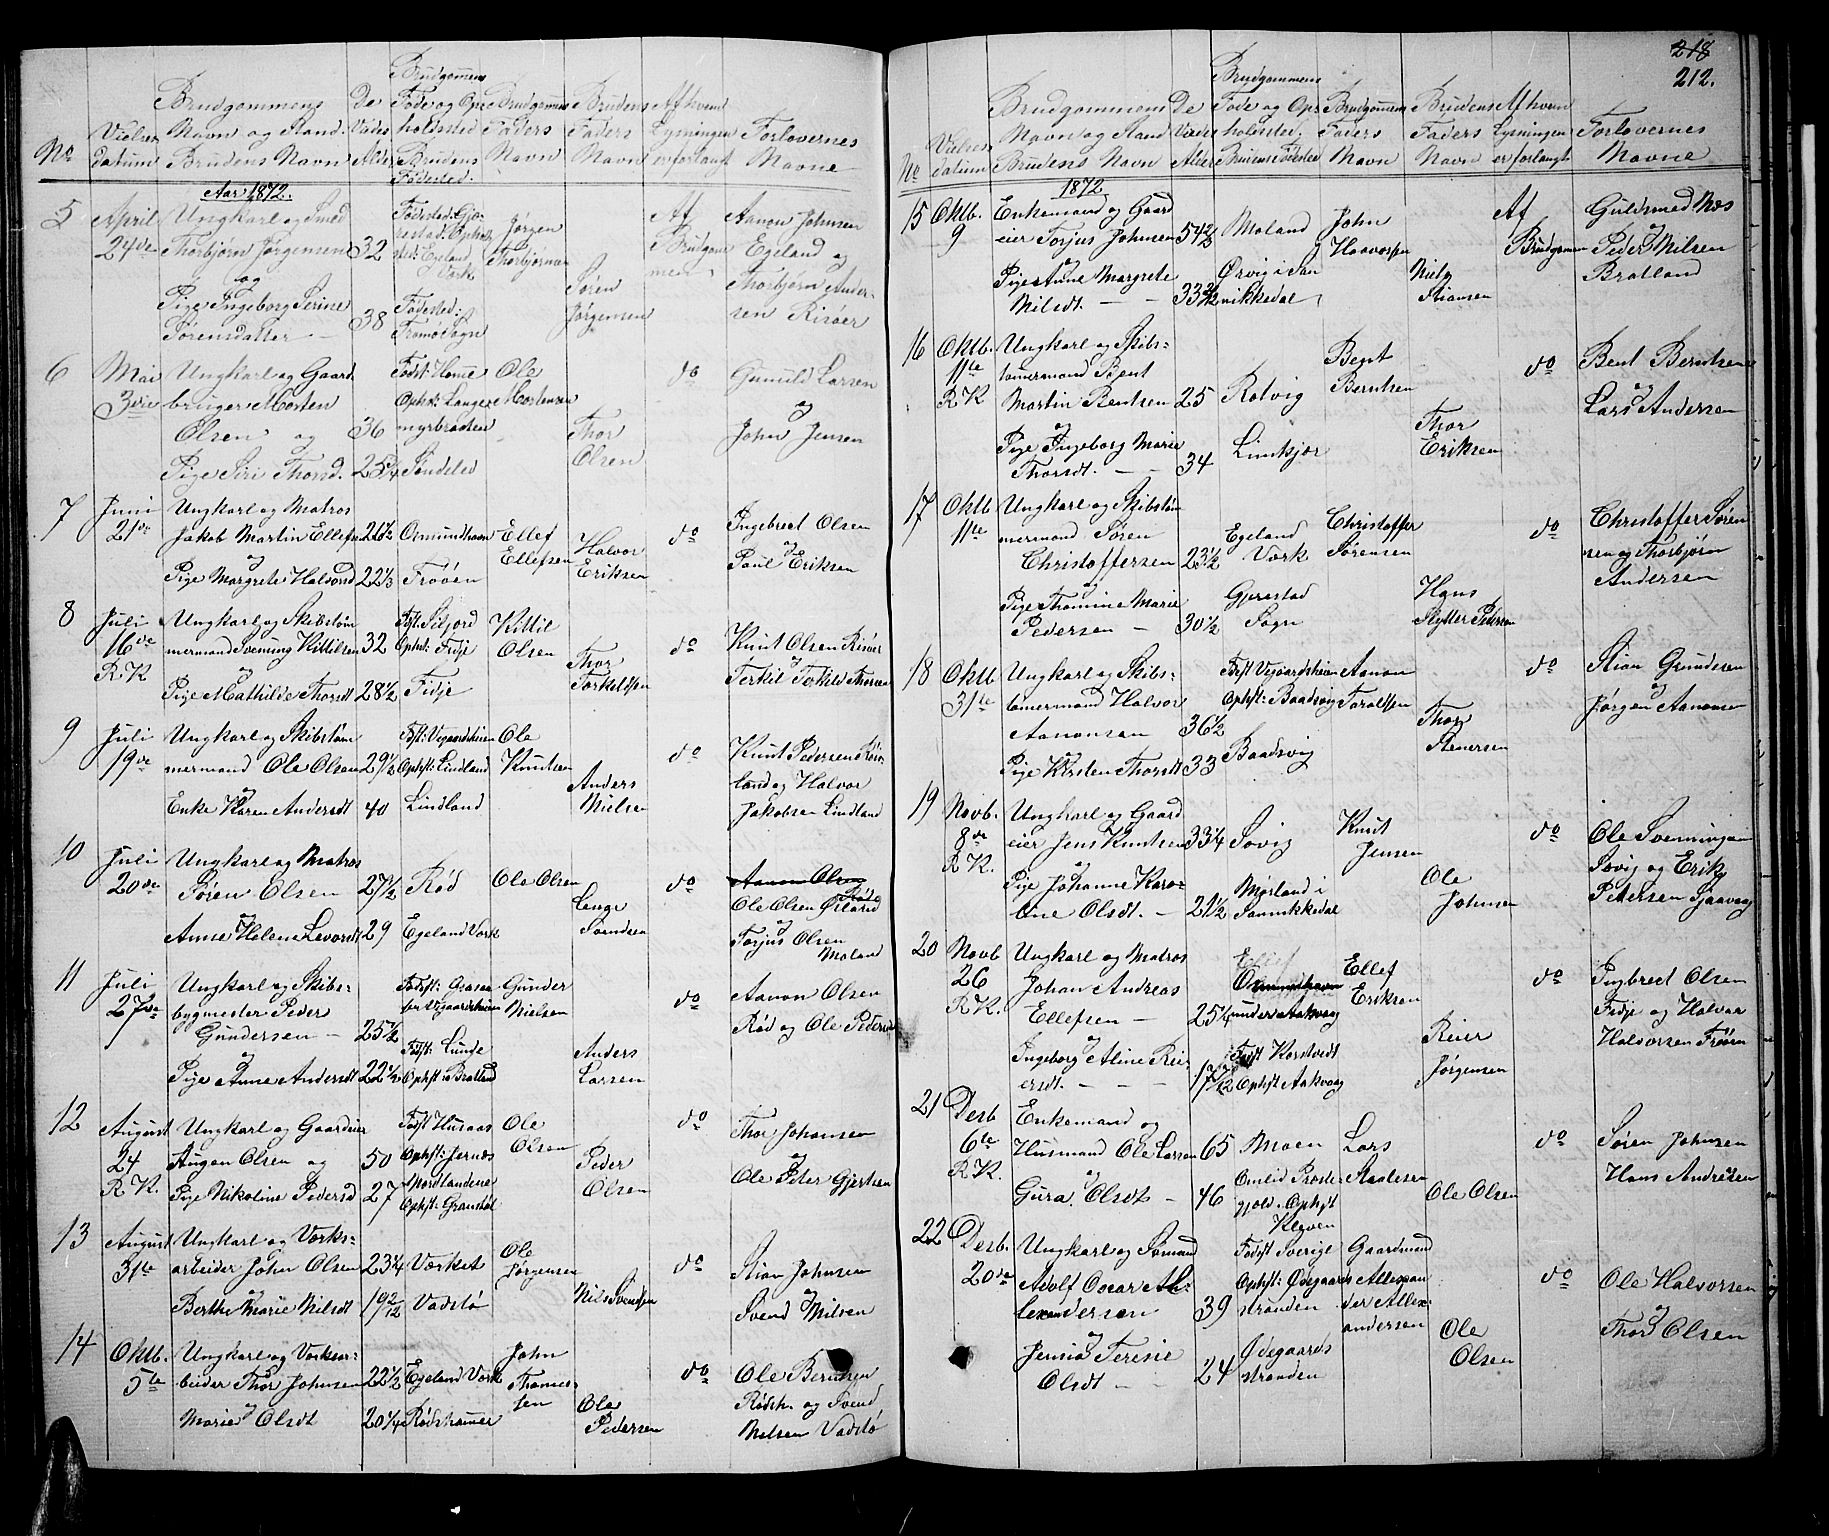 218
212.
No
Vielses
datum
Brudgommens
Navn og Stand
Brudens Navn
De
Viedes
Alder
Brudgommens
Føde og Op
holdssted
Brudens
Fødested.
Brudgommens
Faders
Navn
Brudens
Faders
Navn
Af hvem
Lysningen
er forlangt
Forlovernes
Navne
Aar 1872.
5 April 24de
Ungkarl og Smed
Thorbjørn Jørgensen 32
og
Pige Ingeborg Serine
Sørensdatter 38
Fødested: Gje-
restad. Ophol-
sted: Egeland
Værk
Fødested:
Tromø Sogn
Jørgen
Thorbjørnsen
Søren
Jørgensen
Af
Brudgom
men
Aanon Johnsen
Egeland og
Thorbjørn Ander-
sen Risøer
6 Mai 3die
Ungkarl og Gaard
bruger Morten
Olsen og 36
Pige Siri Thorsd. 25 3/4
Fødst: Homme
Ophst: Lange
myrbraaten
Søndeled
Ole
Mortensen
Thor
Olsen
do
Gunuld Larsen
og
John Jensen
7 Juni 21de
Ungkarl og Matros
Jakob Martin Ellefsen 21 1/2
og
Pige Margrete Halvorsd 22 1/3
Osmundhavn
Frøen
Ellef
Ellefsen
Halvor
Eriksen
do
Ingebret Olsen
og
Paul Eriksen
8 Juli 16de
R.K
Ungkarl og Skibstøm
mermand Svenung Kittilsen 32
og
Pige Mathilde Thorsdt 28 1/2
Fdst: Siljord
Ophst: Fidje
Fidje
Kittil
Olsen
Thor
Torkelsen
do
Knut Olsen Risøer
og
Terkil Terkilsen
9 Juli 19de
Ungkarl og Skibstøm
mermand Ole Olsen 29 1/2
og
Enke Karen Andersdt 40
Fdst: Vegaardsheien
Ophst: Lindland
Lindland
Ole
Knutsen
Anders
Nielsen
do
Knut Pedersen
land og Halvor
Jakobsen Lindland
10 Juli 20de
Ungkarl og Matros
Søren Olsen 27 1/2
og
Anne Helene Levordt 29
Rød
Egeland Værk
Ole Olsen
Svendsen
do
Aanon Olsen
Rød
Ole Olsen
og
Torjus Olsen
Moland
11 Juli 27de
Ungkarl og Skibs-
bygmester Peder
Gundersen 25 1/2
og
Pige Anne Andersdt 22 1/2
Fødst: Gaasaa
Vegaardsheien
Fdst: Lunde
Ophst: Bratland
Gunder
Nielsen
Anders
Larsen
do
Aanon Olsen
Rød og Ole Pedersen
12 August 24
R.K.
Ungkarl og Gaardeier
Augon Olsen og 50
Pige Nikoline Pedersd 27
Fødst Husaas
Ophst: Jernæs
Nordlandene
Ophst: Granstøl
Ole
Olsen
Peder
Olsen
do
Thor Johansen
og
Ole Peter Gjertsen
13 August 31te
Ungkarl og Værks-
arbeider John Olsen 23 1/4
og
Berthe Marie Nilsdt 19 2/12
Værket
Vadstø
Ole
Jørgensen
Nils Svendsen
do
Stian Johnsen
og
Svend Nilsen
14 Oktb. 5te
Ungkarl og Værksar-
beider Thor Johnsen 22 1/2
og
Marie Olsdt 20 1/4
Egeland Værk
Rødshammer
John
Thomes-
sen
Ole
Pedersen
do
Ole Berntsen
Rødsh. og Svend
Nielsen Vadstø
No
Vielses
datum
Brudgommens
Navn og Stand
Brudens Navn
De
Viedes
Alder
Brudgommens
Føde og Op
holdssted.
Brudens Fødested
Brudgommens
Faders
Navn
Brudens
Faders
Navn
Af hvem
Lysningen
er forlangt
Forlovernes
Navne
1872
15 Oktb. 9
Enkemand og Gaard
eier Torjus Johnsen 54 2/3
og
Pige Anne Margrete
Nilsdt. 33 3/12
Moland
Ørvig i San
nikkedal
John
Haavorsen
Niels
Stiansen
Af
Brudgommen
Guldsmed Næs
og
Peder Nilsen
Bratland
16 Oktb. 11te
R.K
Ungkarl og Skibs-
tømermand Bent
Martin Bentsen 25
og
Pige Ingeborg Marie
Thorsdt. 34
Rotvig
Lindkjær
Bent
Berntsen
Thor
Eriksen
do
Bent Berntsen
og
Lars Andersen
17 Oktb 11te
Ungkarl og Skibstøm
mermand Søren
Christoffersen 23 1/2
og
Pige Thomine Marie
Pedersen 30 1/2
Egeland
Værk
Gjerestad
Sogn
Christoffer
Sørensen
Hans
Rytter Pedersen
do
Christoffer Søren
sen og Thorbjørn
Andersen
18 Oktb 31te
Ungkarl og Skibs-
tømermand Halvor
Aanonsen 36 1/2
og
Pige Kirsten Thorsdt 33
Fdst Vegaardsheien
Ophst: Baadsvig
Baadsvig
Aanon
Taraldsen
Thor
Stenersen
do
Stian Grundesen
og
Jørgen Aanonsen
19 Novb. 8de
R.K.
Ungkarl og Gaard
eier Jens Knutsen 33 1/4
og
Pige Johanne Karo-
line Olsdt. 21 1/2
Søvig
Mørland i
Sannikkedal
Knut
Jensen
Ole
Johnsen
do
Ole Svenningsen
Søvig og Erik
Petersen Sjaavaag
20 Novb 26
R.K.
Ungkarl og Matros
Johan Andreas
Ellefsen 25 1/4
og
Ingeborg Aline Rei-
ersdt. 17 1/12
Osmundhavn
under Aakvaag
Fødst Korstvedt
Ophst Aakvaag
Ellef
Eriksen
Reier
Jørgensen
do
Ingbret Olsen
Fidje og Halvor
Halvorsen Frøen
21 Desb 6te
R.K.
Enkemand og
Husmand Ole Larsen 65
og
Gura Olsdt 46
Moen
Omlid Præste
gjeld. Ophst
Kleven
Lars
Staalesen
Ole Olsen
do
Søren Johnsen
Hans Andersen
22 Desb. 20de
Ungkarl og Sømand
Adolf Oscar Al-
lexandersen 39
og
Jensia Teresie
Olsdt 24
Fødst Sverige
Ophst: Ødegaards
stranden
Ødegaards
stranden
Gaardmand
Allexan
der Allex-
andersen
Ole
Olsen
do
Ole Halvorsen
og
Thor Olsen